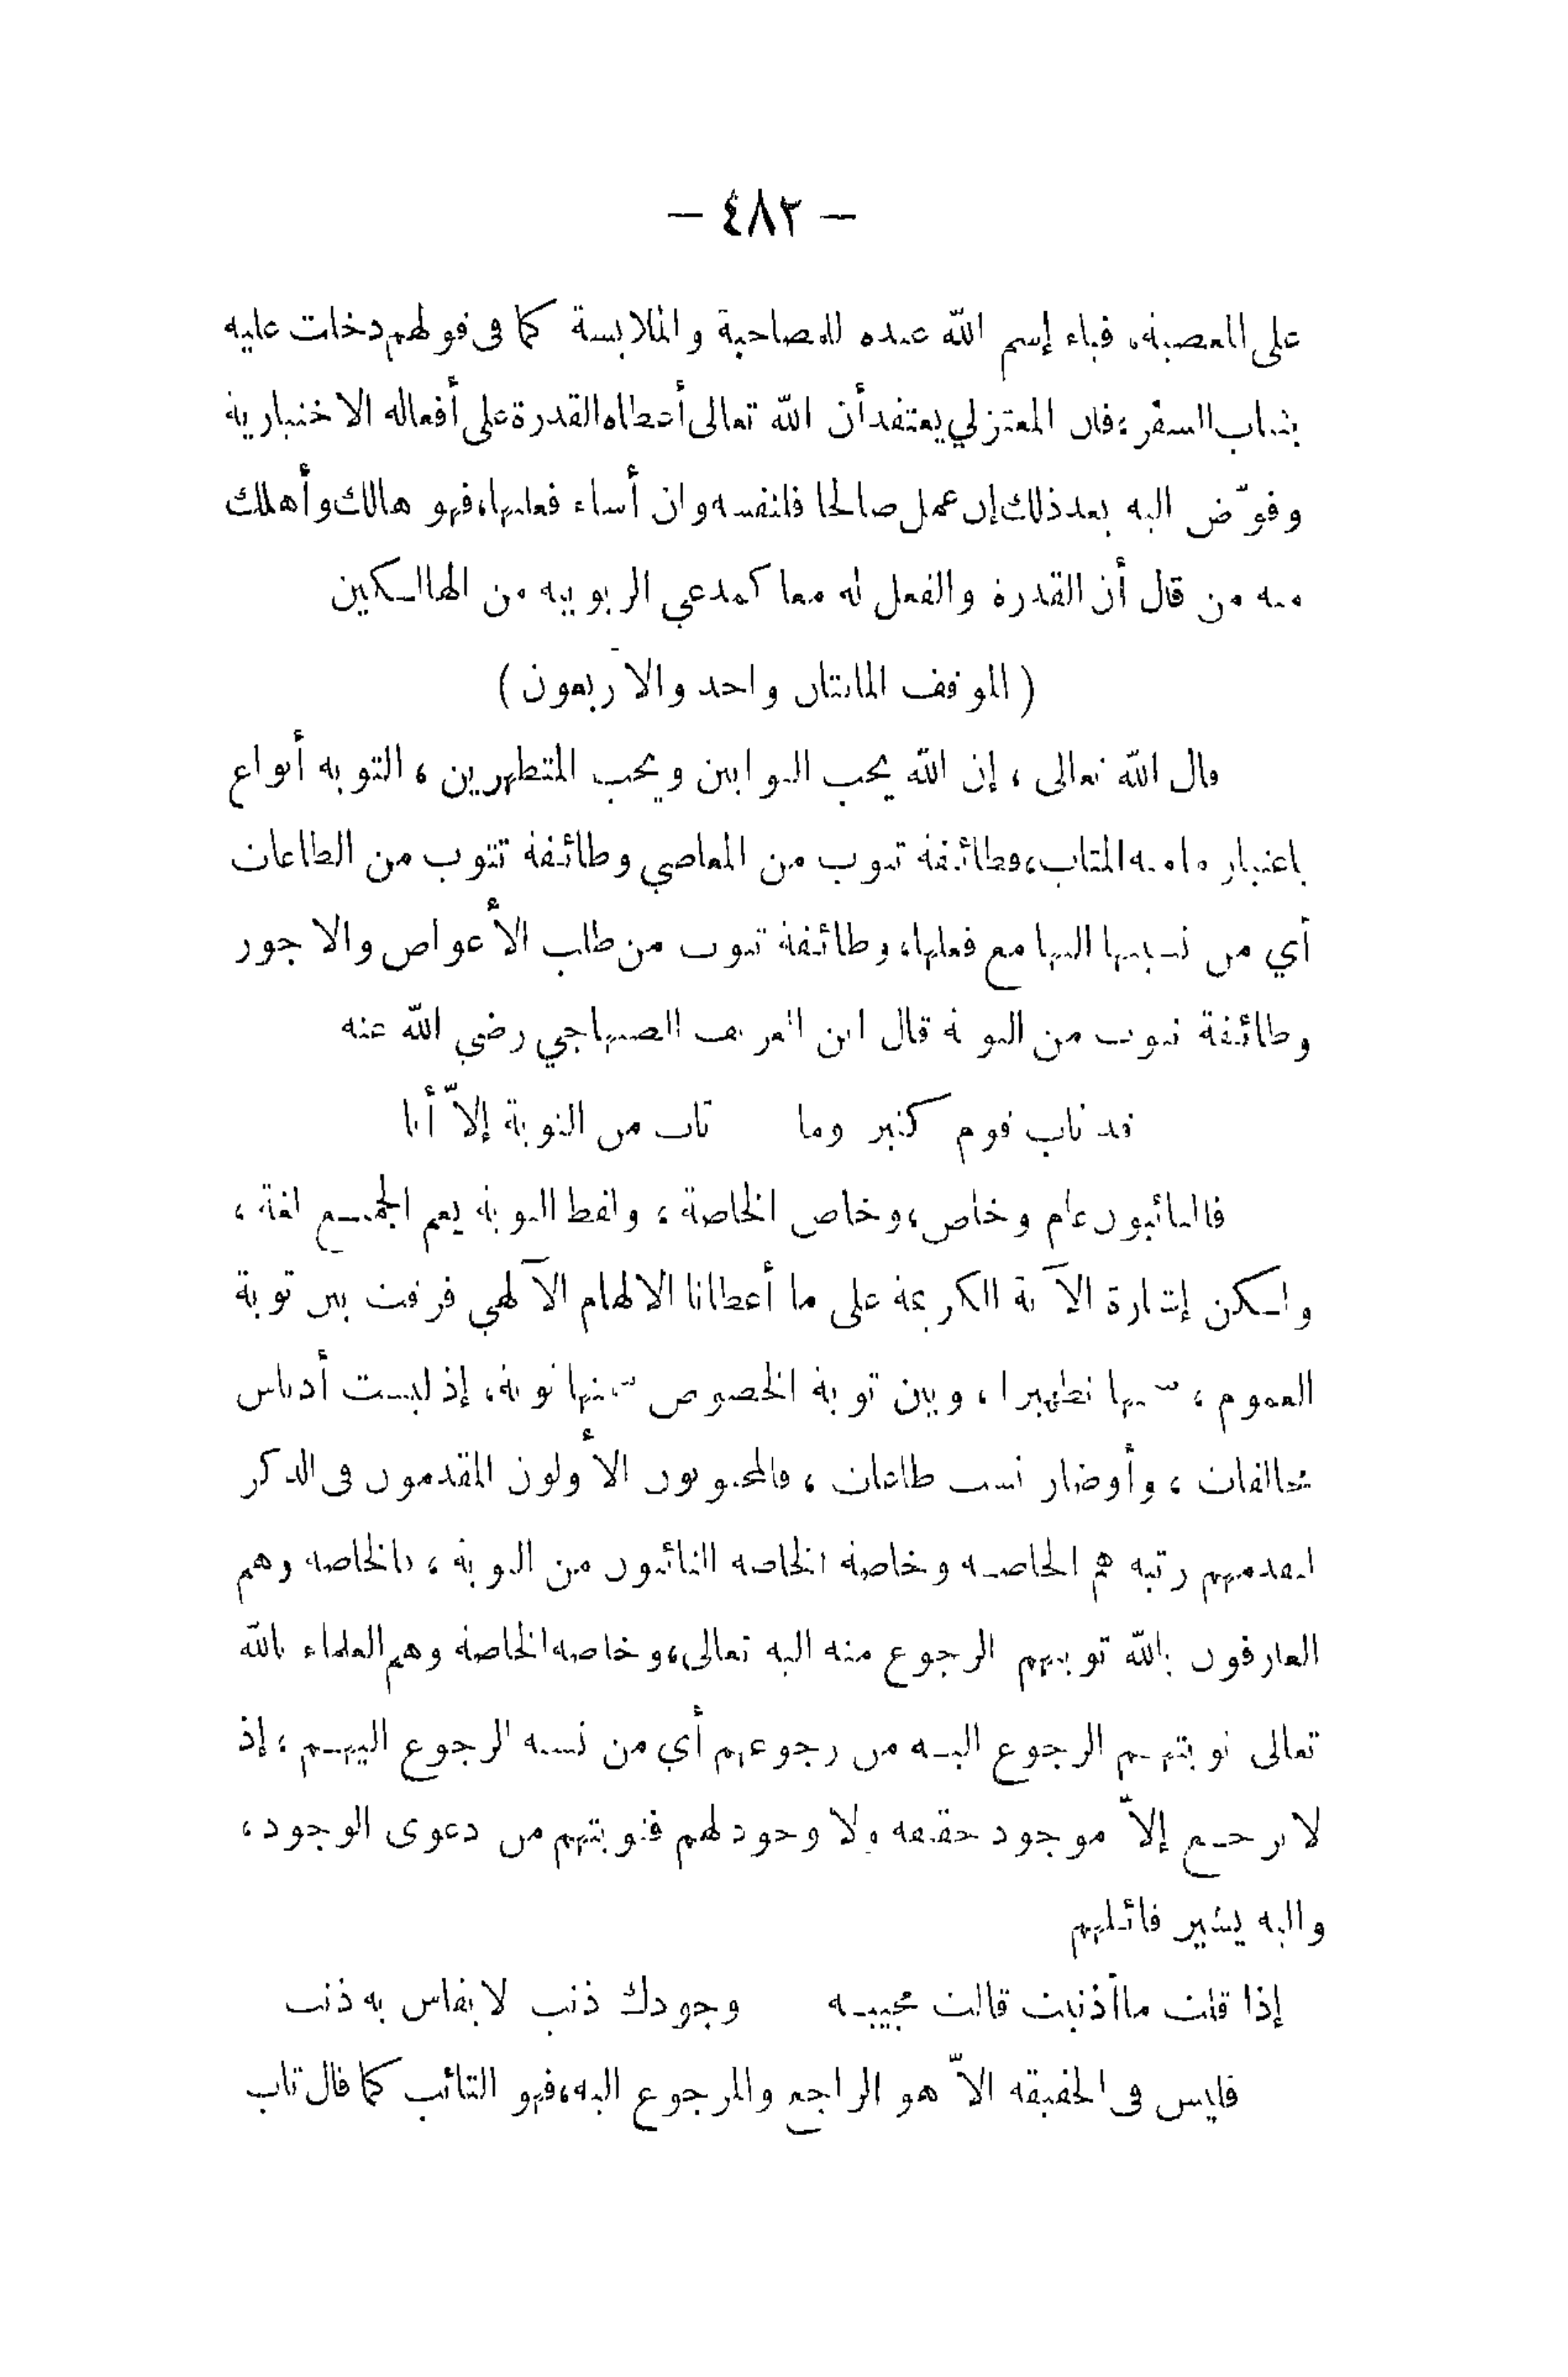 — ٤٨٢ —
على المعصية، فباء إسم الله عنده للمصاحبة والملابسة كما في قولهم دخلت عليه
بثياب السفر، فان المعتزلي يعتقد أن الله تعالى أعطاه القدرة على أفعاله الاختيارية
وفوّض اليه بعد ذلك إن عمل صالحا فلنفسه وان أساء فعليها، فهو هالك وأهلك
منه من قال أن القدرة والفعل له معا كمدعي الربوبية من الهالكين
( الموقف المائتان واحد والأربعون )
قال الله تعالى ، إن الله يحب التوابين ويحب المتطهرين ، التوبة أنواع
باعتبار ما منه المتاب، فطائفة تتوب من المعاصي وطائفة تتوب من الطاعات
أي من نسبتها اليها مع فعلها، وطائفة تتوب من طلب الأعواض والاجور
وطائفة تتوب من التوبة قال ابن العريف الصنهاجي رضي الله عنه
قد تاب قوم كثير وما تاب من التوبة إلاّ أنا
فالتائبون عام وخاص، وخاص الخاصة ، ولفظ التوبة يعم الجميع لغة ،
ولكن إشارة الآية الكريمة على ما أعطانا الالهام الآلهي فرقت بين توبة
العموم ، سمتها تطهيرا ، وبين توبة الخصوص سمتها توبة، إذ ليست أدناس
مخالفات ، وأوضار نسب طاعات ، فالمحبوبون الأولون المقدمون في الذكر
لتقدمهم رتبة هم الخاصة وخاصة الخاصة التائبون من التوبة ، فالخاصة وهم
العارفون بالله توبتهم الرجوع منه اليه تعالى، وخاصة الخاصة وهم العلماء بالله
تعالى توبتهم الرجوع اليه من رجوعهم أي من نسبة الرجوع اليهم ، إذ
لا يرجع إلاّ موجود حقيقة ولا وجود لهم فتوبتهم من دعوى الوجود ،
واليه يشير قائلهم
إذا قلت ما أذنبت قالت مجيبة وجودك ذنب لا يقاس به ذنب
فليس في الحقيقة الاّ هو الراجع والمرجوع اليه، فهو التائب كما قال تاب